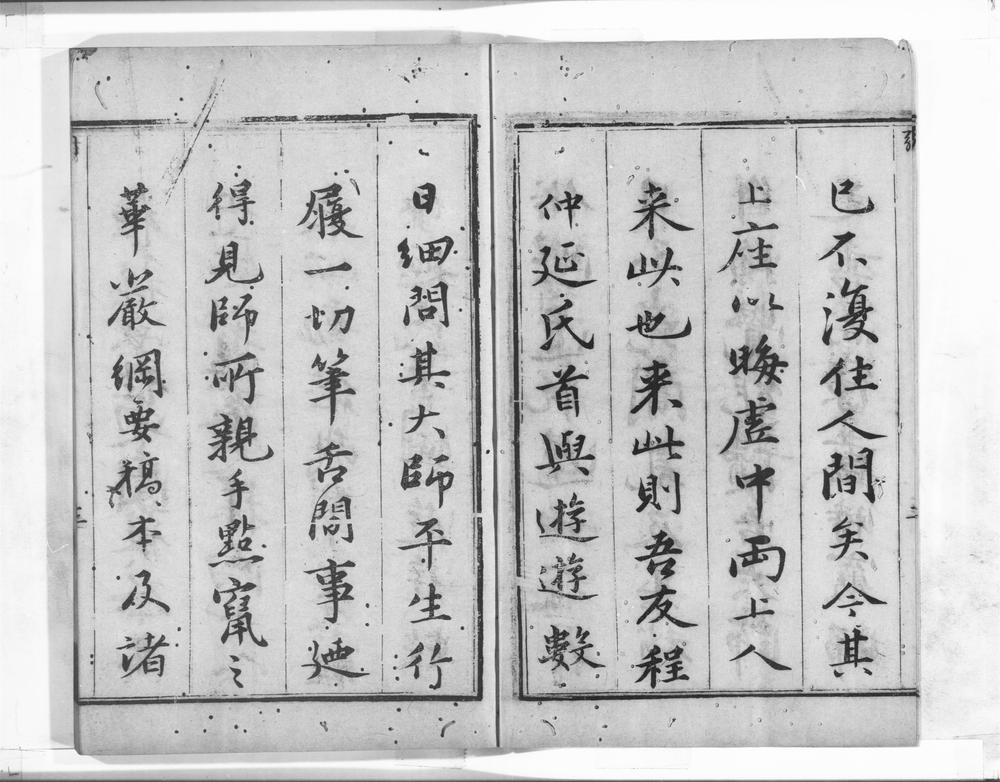 已不復住人間矣今其
上座以晦虛中両上人
来此也来此則吾友程
仲延氏首與遊遊數
日細問其大師平生行
履一切筆舌間事廼
得見師所親手點竄之
華嚴綱要稿本及諸